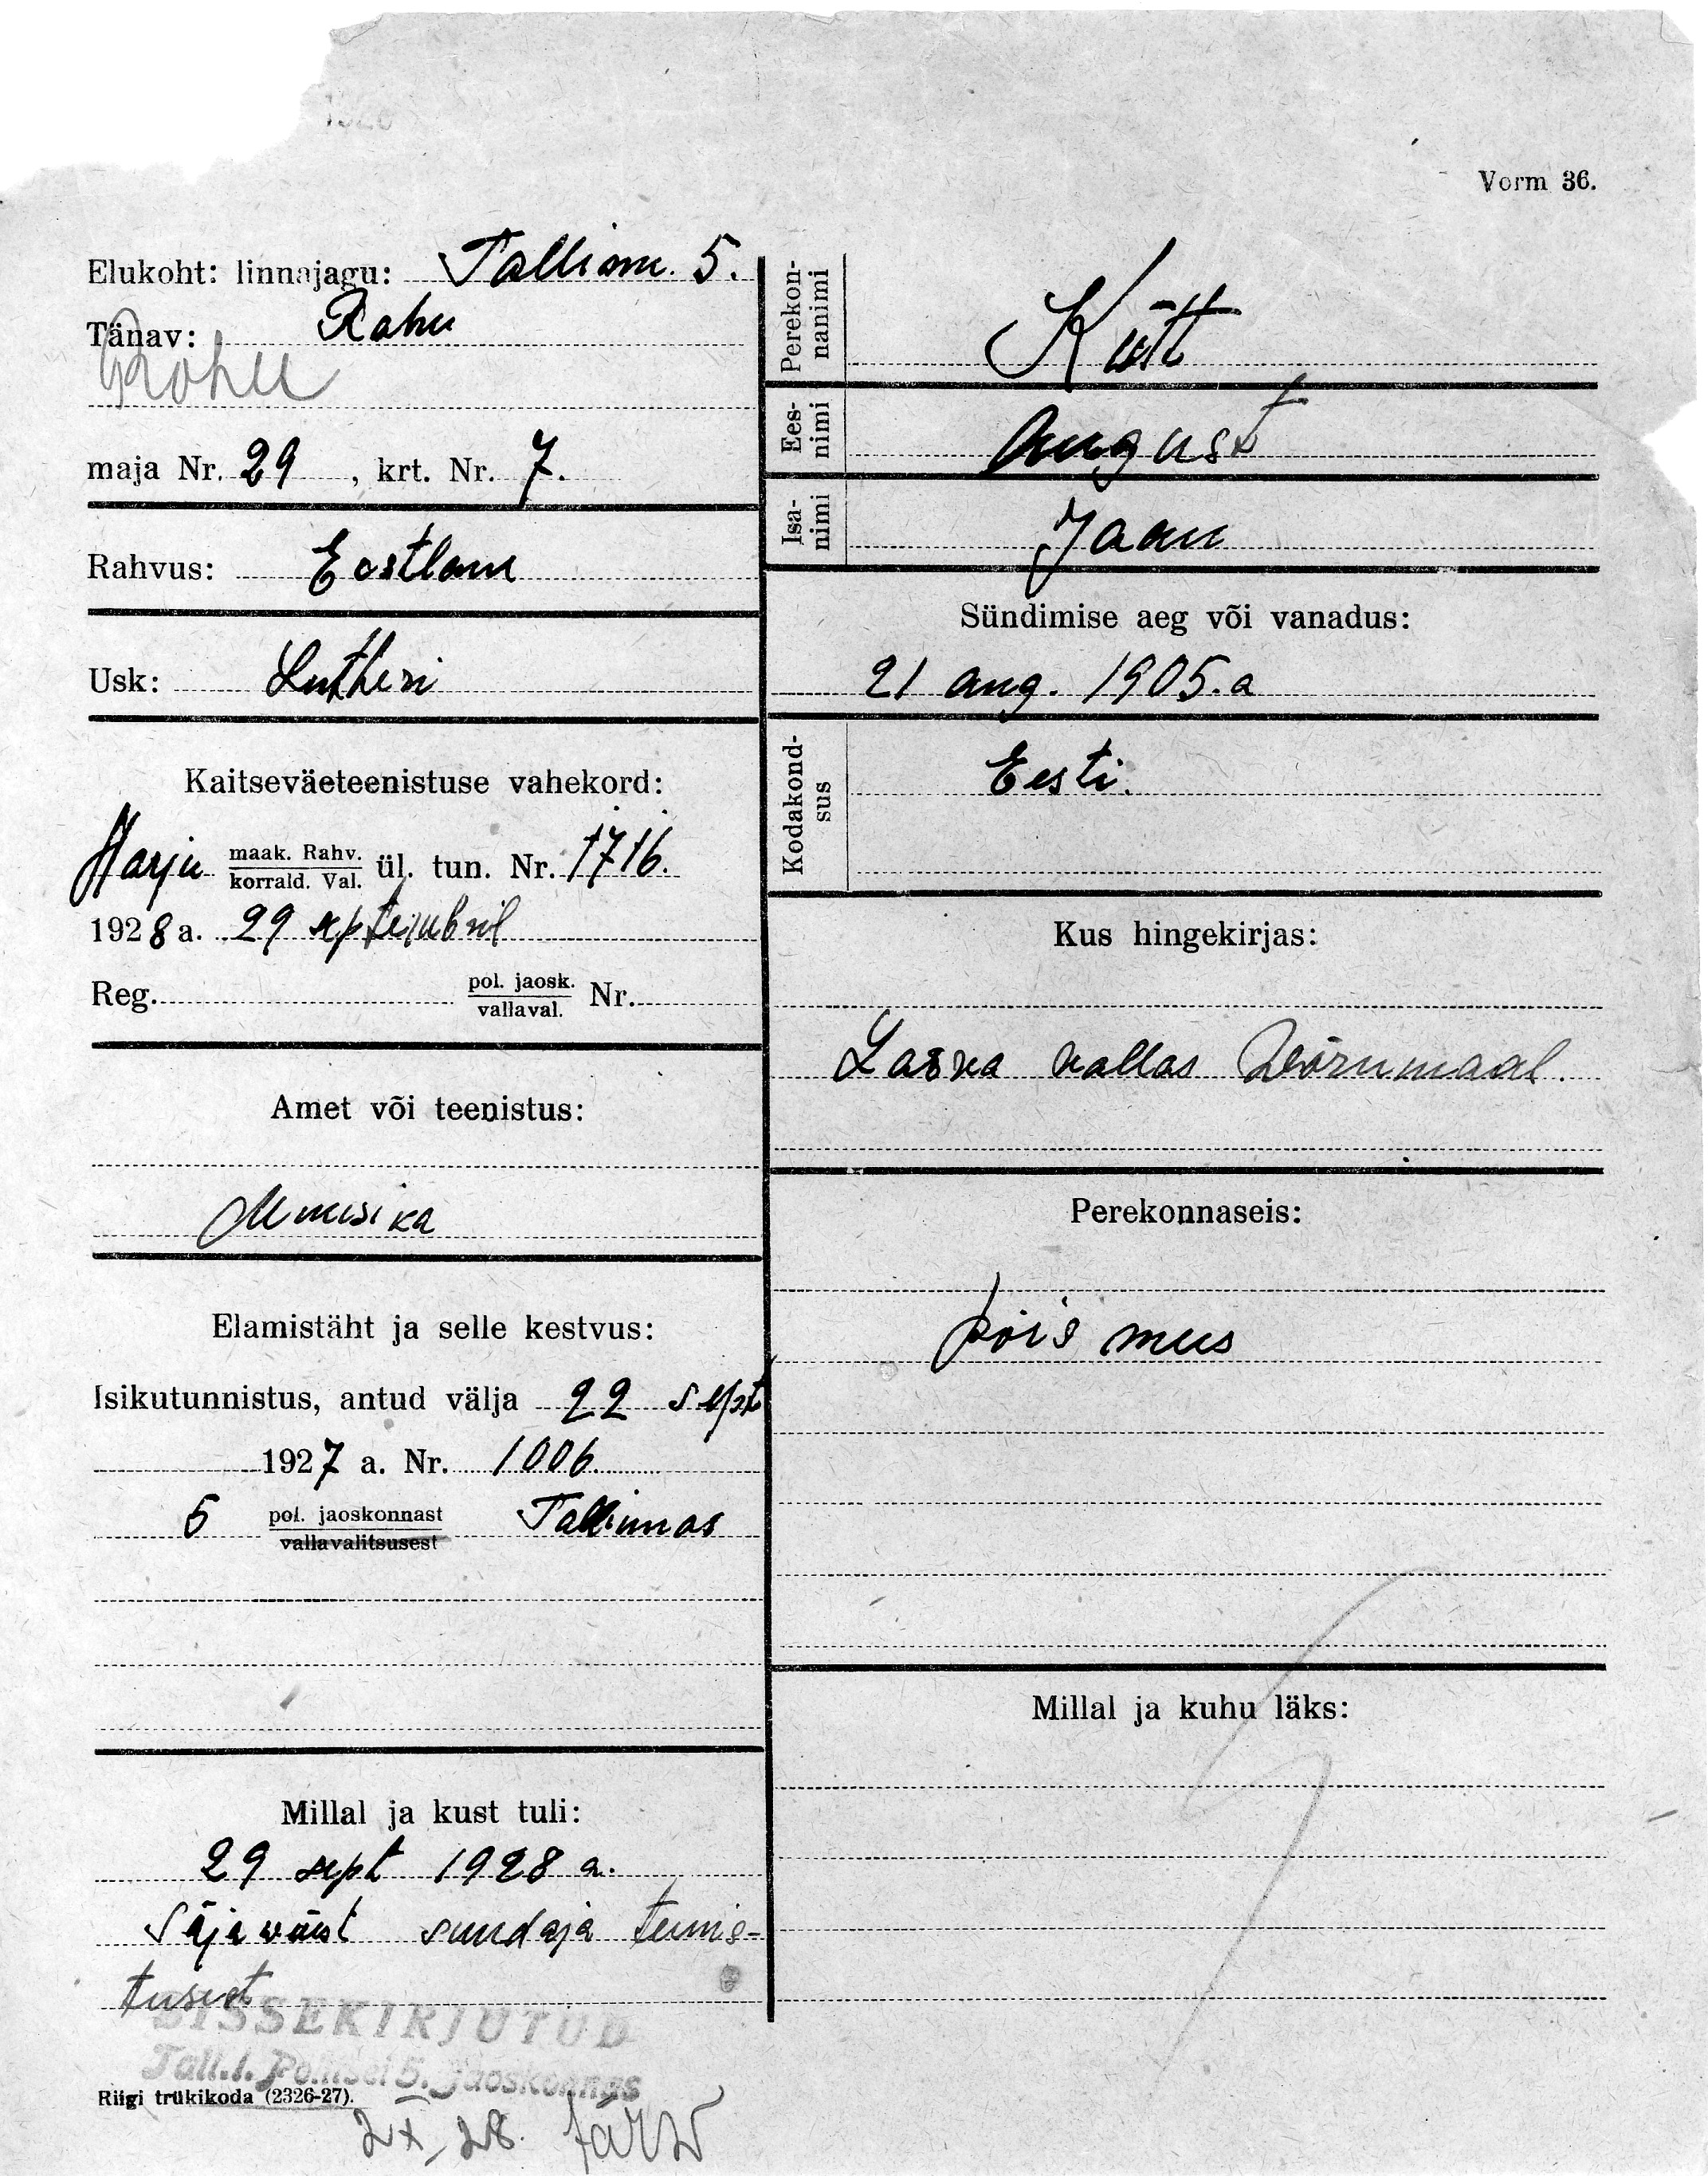 Vorm 36.
Elukoht: linnajagu: Tallinn. 5.
Tänav: Rahu
Rohu
maja Nr. 29, krt. Nr. 7.
Rahvus: Eestlane
Usk: Lutheri
Kaitseväeteenistuse vahekord:
Harju maak. Rahv. korrald. Val. ül. tun. Nr. 1716.
1928 a. 29 septembril
Reg. pol. jaosk. vallaval. Nr.
Amet või teenistus:
Muusika
Elamistäht ja selle kestvus:
Isikutunnistus, antud välja 22 sept
1927 a. Nr. 1006.
5 pol. jaoskonnast vallavalitsusest Tallinnas
Millal ja kust tuli:
29 sept 1928 a.
Sõjaväest sundaja teenis-
tusest
SISSEKIRJUTUD
Tall.l. Politsei 5. Jaoskonnas
Riigi trükikoda (2326-27).
2X 28.
Perekon-
nanimi
Kütt
Ees-
nimi
August
Isa-
nimi
Jaan
Sündimise aeg või vanadus:
21 aug. 1905.a
Kodakond-
sus
Eesti.
Kus hingekirjas:
Lasva vallas Võrumaal.
Perekonnaseis:
pois mees
Millal ja kuhu läks: